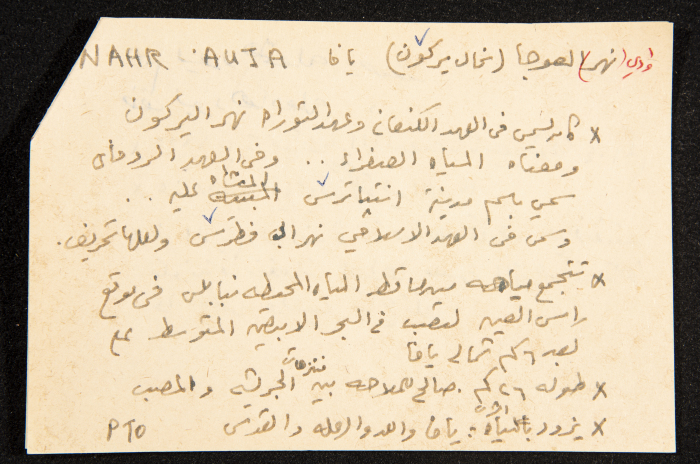 وادي (نهر) العوجا (نحال يركون) يافا NAHR 'AUJA
x كان يسمى في العهد الكنعاني وعهد التوراه نهر اليركون
ومعناه المياه الصفراء .. وفي العهد الروماني
سمي باسم مدينة انتيباترس المقامة عليه ..
وسمي في العهد الاسلامي نهر ابي فطرس ولعلها تحريف.
x تتجمع مياهه من مساقط المياه المحيطه بنابلس في موقع
راس العين ليصب في البحر الابيض المتوسط على
بعد ٦ كم شمالي يافا
x طوله ٢٦ كم. صالح للملاحه بين منتزهات الجريشه والمصب
x يزود بالمياه: يافا واللد والرمله والقدس
PTO